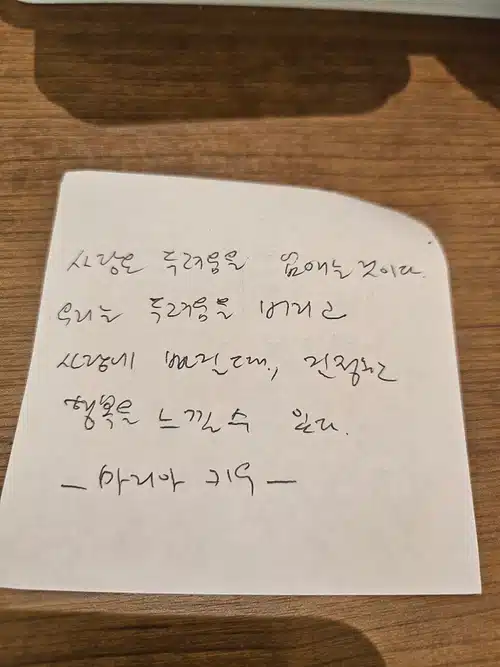 사랑은 두려움을 없애는 것이다.
우리는 두려움을 버리고
사랑에 빠질때, 진정한
행복을 느낄 수 있다.
- 마리아 -